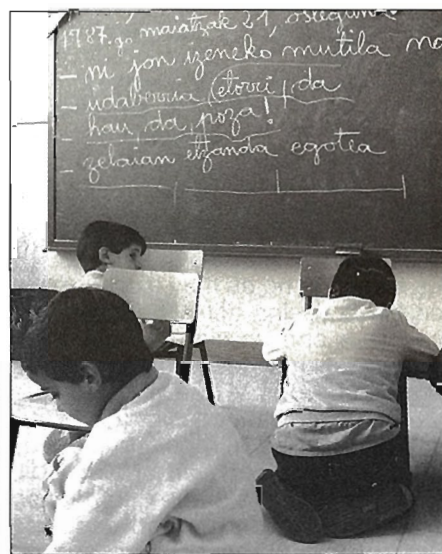 1987.go maiatzak 21, osteguna
- ni jon izeneko mutila na
- udaberria etorri da
hau da poza!
- zelaian etzanda egotea